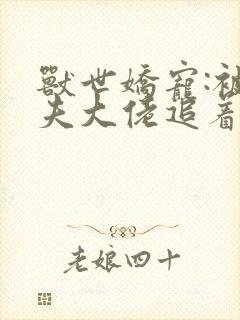 獸世嬌寵:被
夫大佬追着
老娘四十